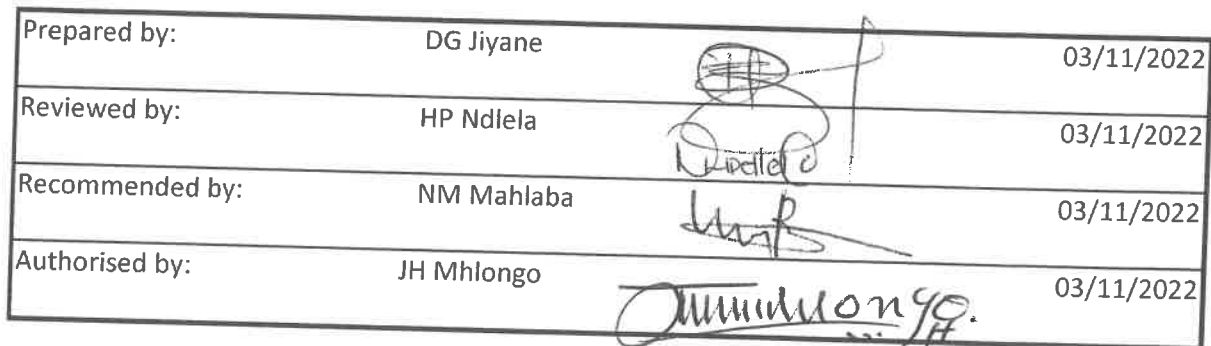 Prepared by: DG Jiyane 03/11/2022
Reviewed by: HP Ndlela 03/11/2022
Recommended by: NM Mahlaba 03/11/2022
Authorised by: JH Mhlongo 03/11/2022